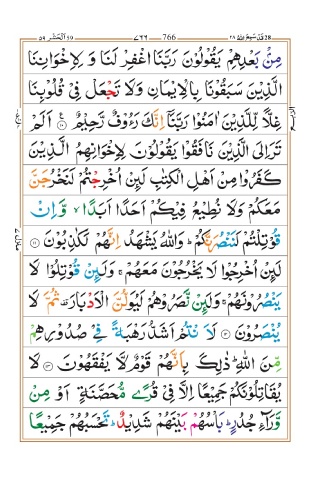 قد سمع الله ٢٨ 766 ٧٦٦ الحشر ٥٩
مِنْۢ بَعْدِهِمْ يَقُوْلُوْنَ رَبَّنَا اغْفِرْ لَنَا وَ لِاِخْوَانِنَا
الَّذِيْنَ سَبَقُوْنَا بِالْاِيْمَانِ وَلَا تَجْعَلْ فِيْ قُلُوْبِنَا
غِلًّا لِّلَّذِيْنَ اٰمَنُوْا رَبَّنَاۤ اِنَّكَ رَءُوْفٌ رَّحِيْمٌ ۝۱۰ اَلَمْ
تَرَ اِلَى الَّذِيْنَ نَافَقُوْا يَقُوْلُوْنَ لِاِخْوَانِهِمُ الَّذِيْنَ
كَفَرُوْا مِنْ اَهْلِ الْكِتٰبِ لَىِٕنْ اُخْرِجْتُمْ لَنَخْرُجَنَّ
مَعَكُمْ وَلَا نُطِيْعُ فِيْكُمْ اَحَدًا اَبَدًا ۙ وَّاِنْ
قُوْتِلْتُمْ لَنَنْصُرَنَّكُمْ ؕ وَاللّٰهُ يَشْهَدُ اِنَّهُمْ لَكٰذِبُوْنَ ۝۱۱
لَىِٕنْ اُخْرِجُوْا لَا يَخْرُجُوْنَ مَعَهُمْ ۚ وَلَىِٕنْ قُوْتِلُوْا لَا
يَنْصُرُوْنَهُمْ ۚ وَلَىِٕنْ نَّصَرُوْهُمْ لَيُوَلُّنَّ الْاَدْبَارَ ۫ ثُمَّ لَا
يُنْصَرُوْنَ ۝۱۲ لَاَنْتُمْ اَشَدُّ رَهْبَةً فِيْ صُدُوْرِهِمْ
مِّنَ اللّٰهِ ؕ ذٰلِكَ بِاَنَّهُمْ قَوْمٌ لَّا يَفْقَهُوْنَ ۝۱۳ لَا
يُقَاتِلُوْنَكُمْ جَمِيْعًا اِلَّا فِيْ قُرًى مُّحَصَّنَةٍ اَوْ مِنْ
وَّرَآءِ جُدُرٍ ؕ بَاْسُهُمْ بَيْنَهُمْ شَدِيْدٌ ؕ تَحْسَبُهُمْ جَمِيْعًا